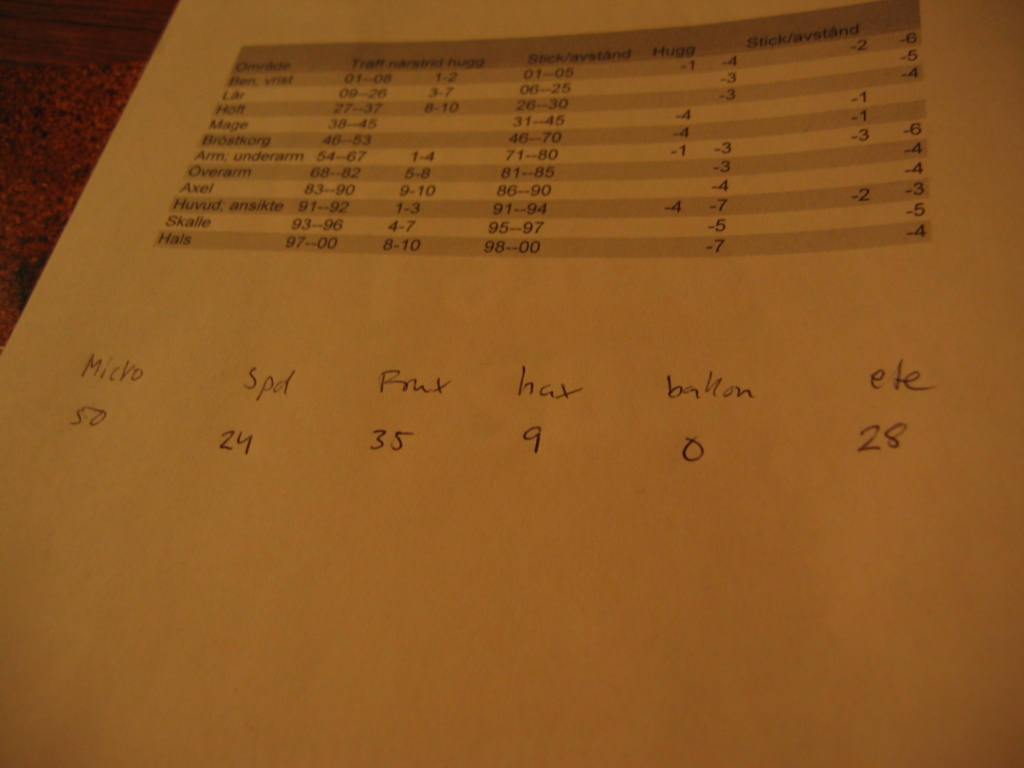 Område Träff närstrid hugg Stick/avstånd Hugg Stick/avstånd
Ben, vrist 01--08 1-2 01--05 -1 -4 -2 -6
Lår 09--26 3-7 06--25 -3 -5
Höft 27--37 8-10 26--30 -3 -4
Mage 38--45 31--45 -4 -1
Bröstkorg 46--53 46--70 -4 -1
Arm, underarm 54--67 1-4 71--80 -1 -3 -3 -6
Överarm 68--82 5-8 81--85 -3 -4
Axel 83--90 9-10 86--90 -4 -4
Huvud, ansikte 91--92 1-3 91--94 -4 -7 -2 -3
Skalle 93--96 4-7 95--97 -5 -5
Hals 97--00 8-10 98--00 -7 -4
Micro Spd Frux hax ballon ete
50 24 35 9 0 28